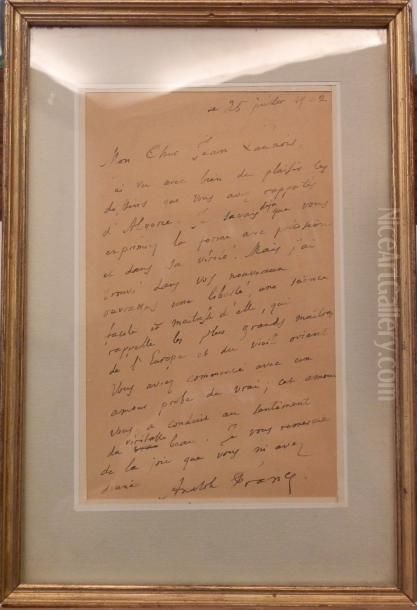 25 juillet 1902
Mon Cher Jean
J'ai vu avec bien du plaisir les
dessins que vous avez rapportés
d' Je savais déjà que vous
exprimez la forme avec précision
et dans sa vérité. Mais j'ai
trouvé dans vos nouveaux
ouvrages une liberté, une science
facile et maîtresse d'elle, qui
rappelle les plus grands maîtres
de l'Europe et du vieil orient
Vous avez commencé avec un
amour probe du vrai; cet amour
vous a conduit au sentiment
du véritable beau. Je vous remercie
de la joie que vous m'avez
donnée Anatole France.
NiceArtGallery.com